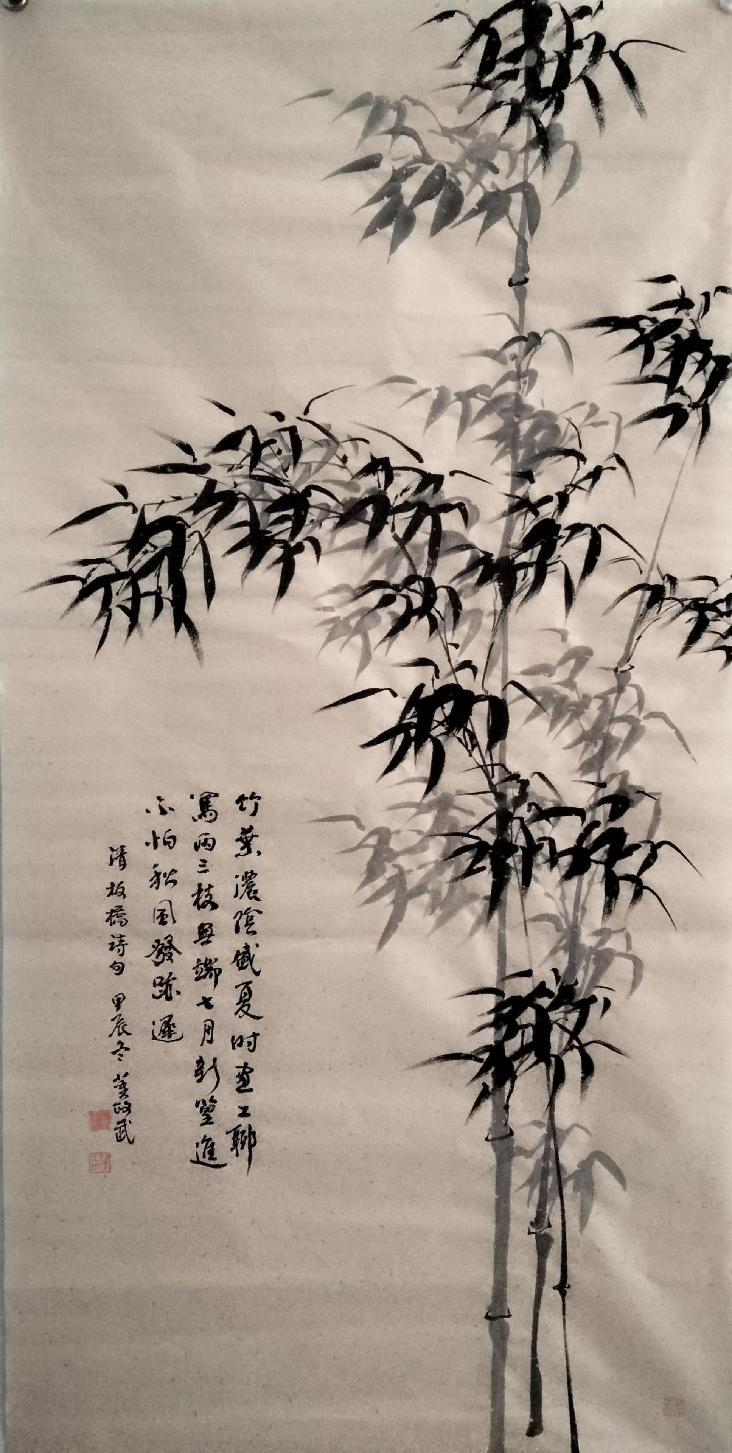 竹葉濃陰盛夏時畫工聊
寫兩三枝無端七月新篁進
不怕秋風發跡遲
清板橋詩句 甲辰冬 董政武